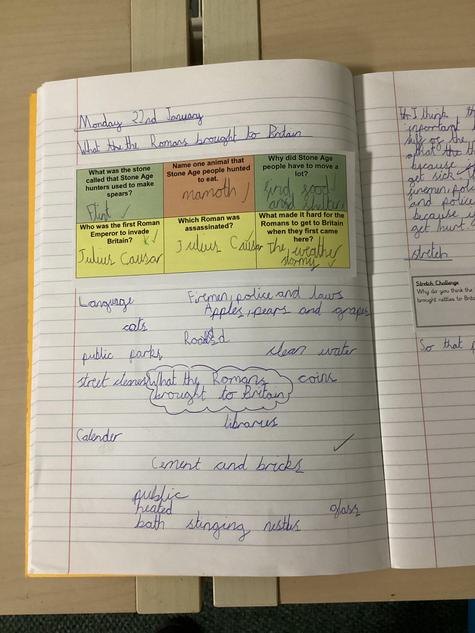 Monday 22nd January
What the the Romans brought to Britain
What was the stone called that Stone Age hunters used to make spears?
Flint
Name one animal that Stone Age people hunted to eat.
mamoth
Why did Stone Age people have to move a lot?
find food
and shelter
Who was the first Roman Emperor to invade Britain?
Julius Causar
Which Roman was assassinated?
Julius Causar
What made it hard for the Romans to get to Britain when they first came here?
The weather
stormy
Language
Firemen, police and laws
Apples, pears and grapes
cats
Roads
public parks
clean water
street cleaners
What the Romans
brought to Britain
coins
libraries
Calender
Cement and bricks
public
heated
bath
stinging nettles
glass
I think th
important
because
get sick
firemen pol
and police
because
get hurt
stretch
Stretch Challenge
Why do you think the
brought nettles to Britain
So that p